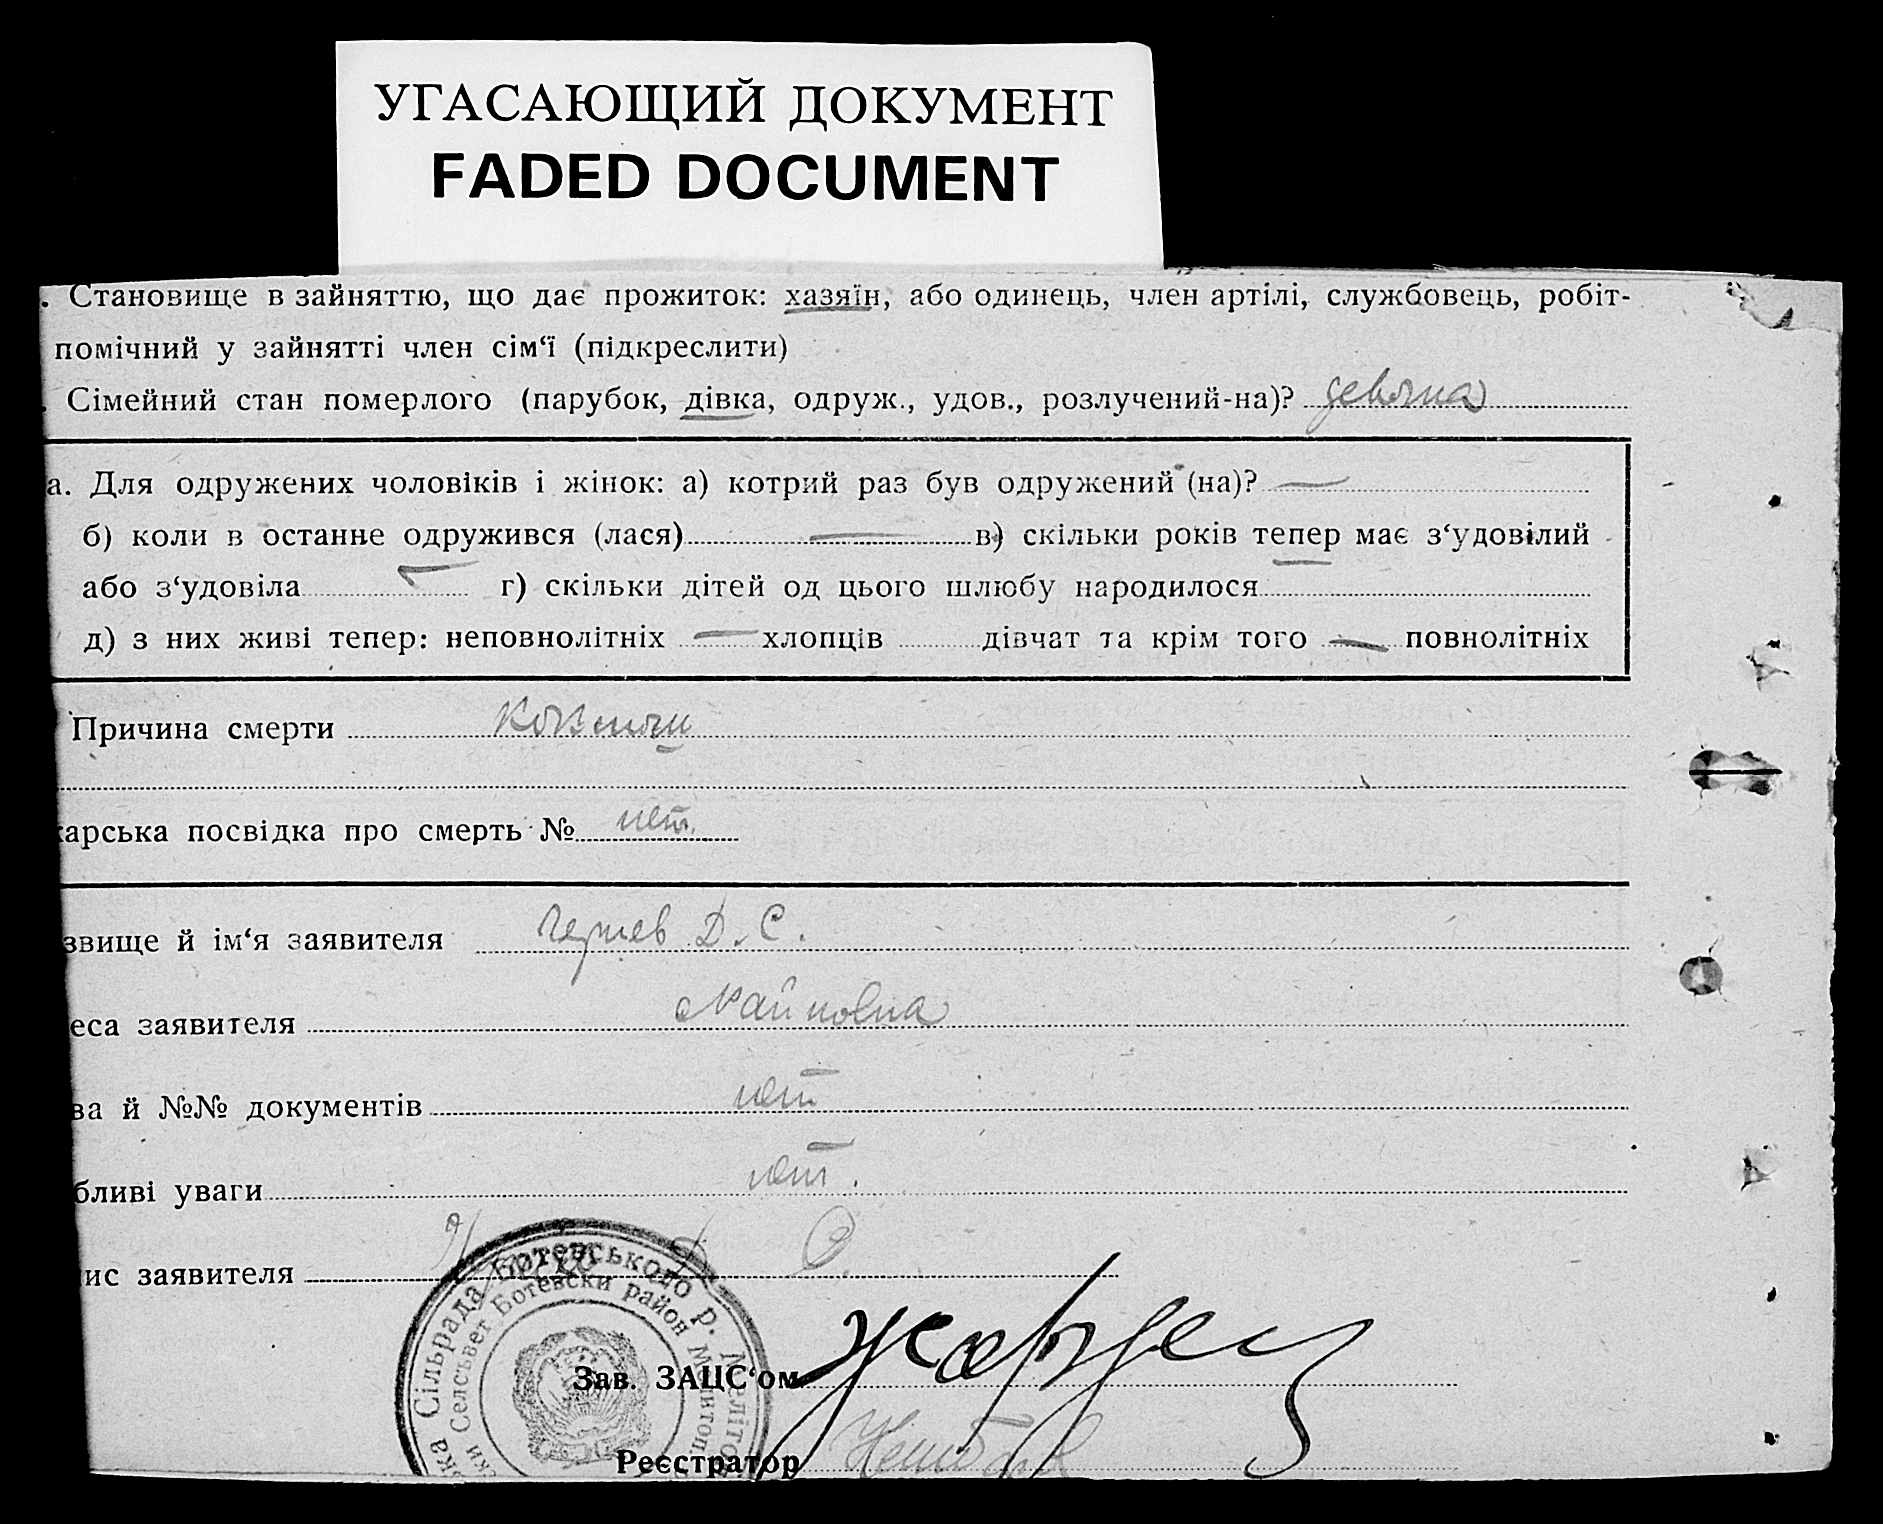 УГАСАЮЩИЙ ДОКУМЕНТ
FADED DOCUMENT
. Становище в зайняттю, що дає прожиток: хазяїн, або одинець, член артілі, службовець, робіт-
помічний у зайнятті член сім‘ї (підкреслити)
. Сімейний стан померлого (парубок, дівка, одруж., удов., розлучений-на)?
а. Для одружених чоловіків і жінок: а) котрий раз був одружений (на)? —
б) коли в останне одружився (лася) — в) скільки років тепер має з‘удовілий
або з‘удовіла — г) скільки дітей од цього шлюбу народилося
д) з них живі тепер: неповнолітніх — хлопців дівчат та крім того — повнолітніх
Причина смерти
карська посвідка про смерть № нет.
звище й ім‘я заявителя Д. С.
еса заявителя Майновка
ва й №№ документів нет
бливі уваги нет.
ис заявителя
Сільрада Ботевського р. Меліто
Селсъвет Ботевски район Мелитоп
Зав. ЗАЦС‘ом
Реєстратор